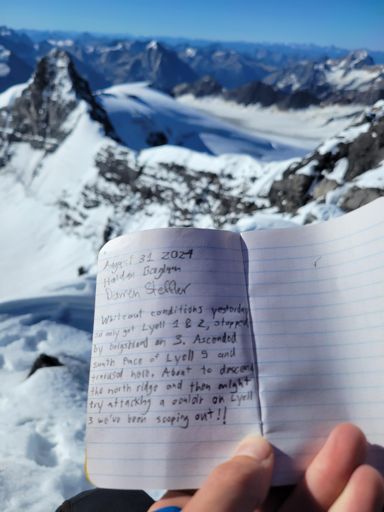 August 31 2024
Holden
Darren Steffler
Whiteout conditions yesterday
so only got Lyell 1 & 2, stopped
by on 3. Ascended
south face of Lyell 5 and
traversed here. About to descend
the north ridge and then might
try attacking a couloir on Lyell
3 we've been scoping out!!